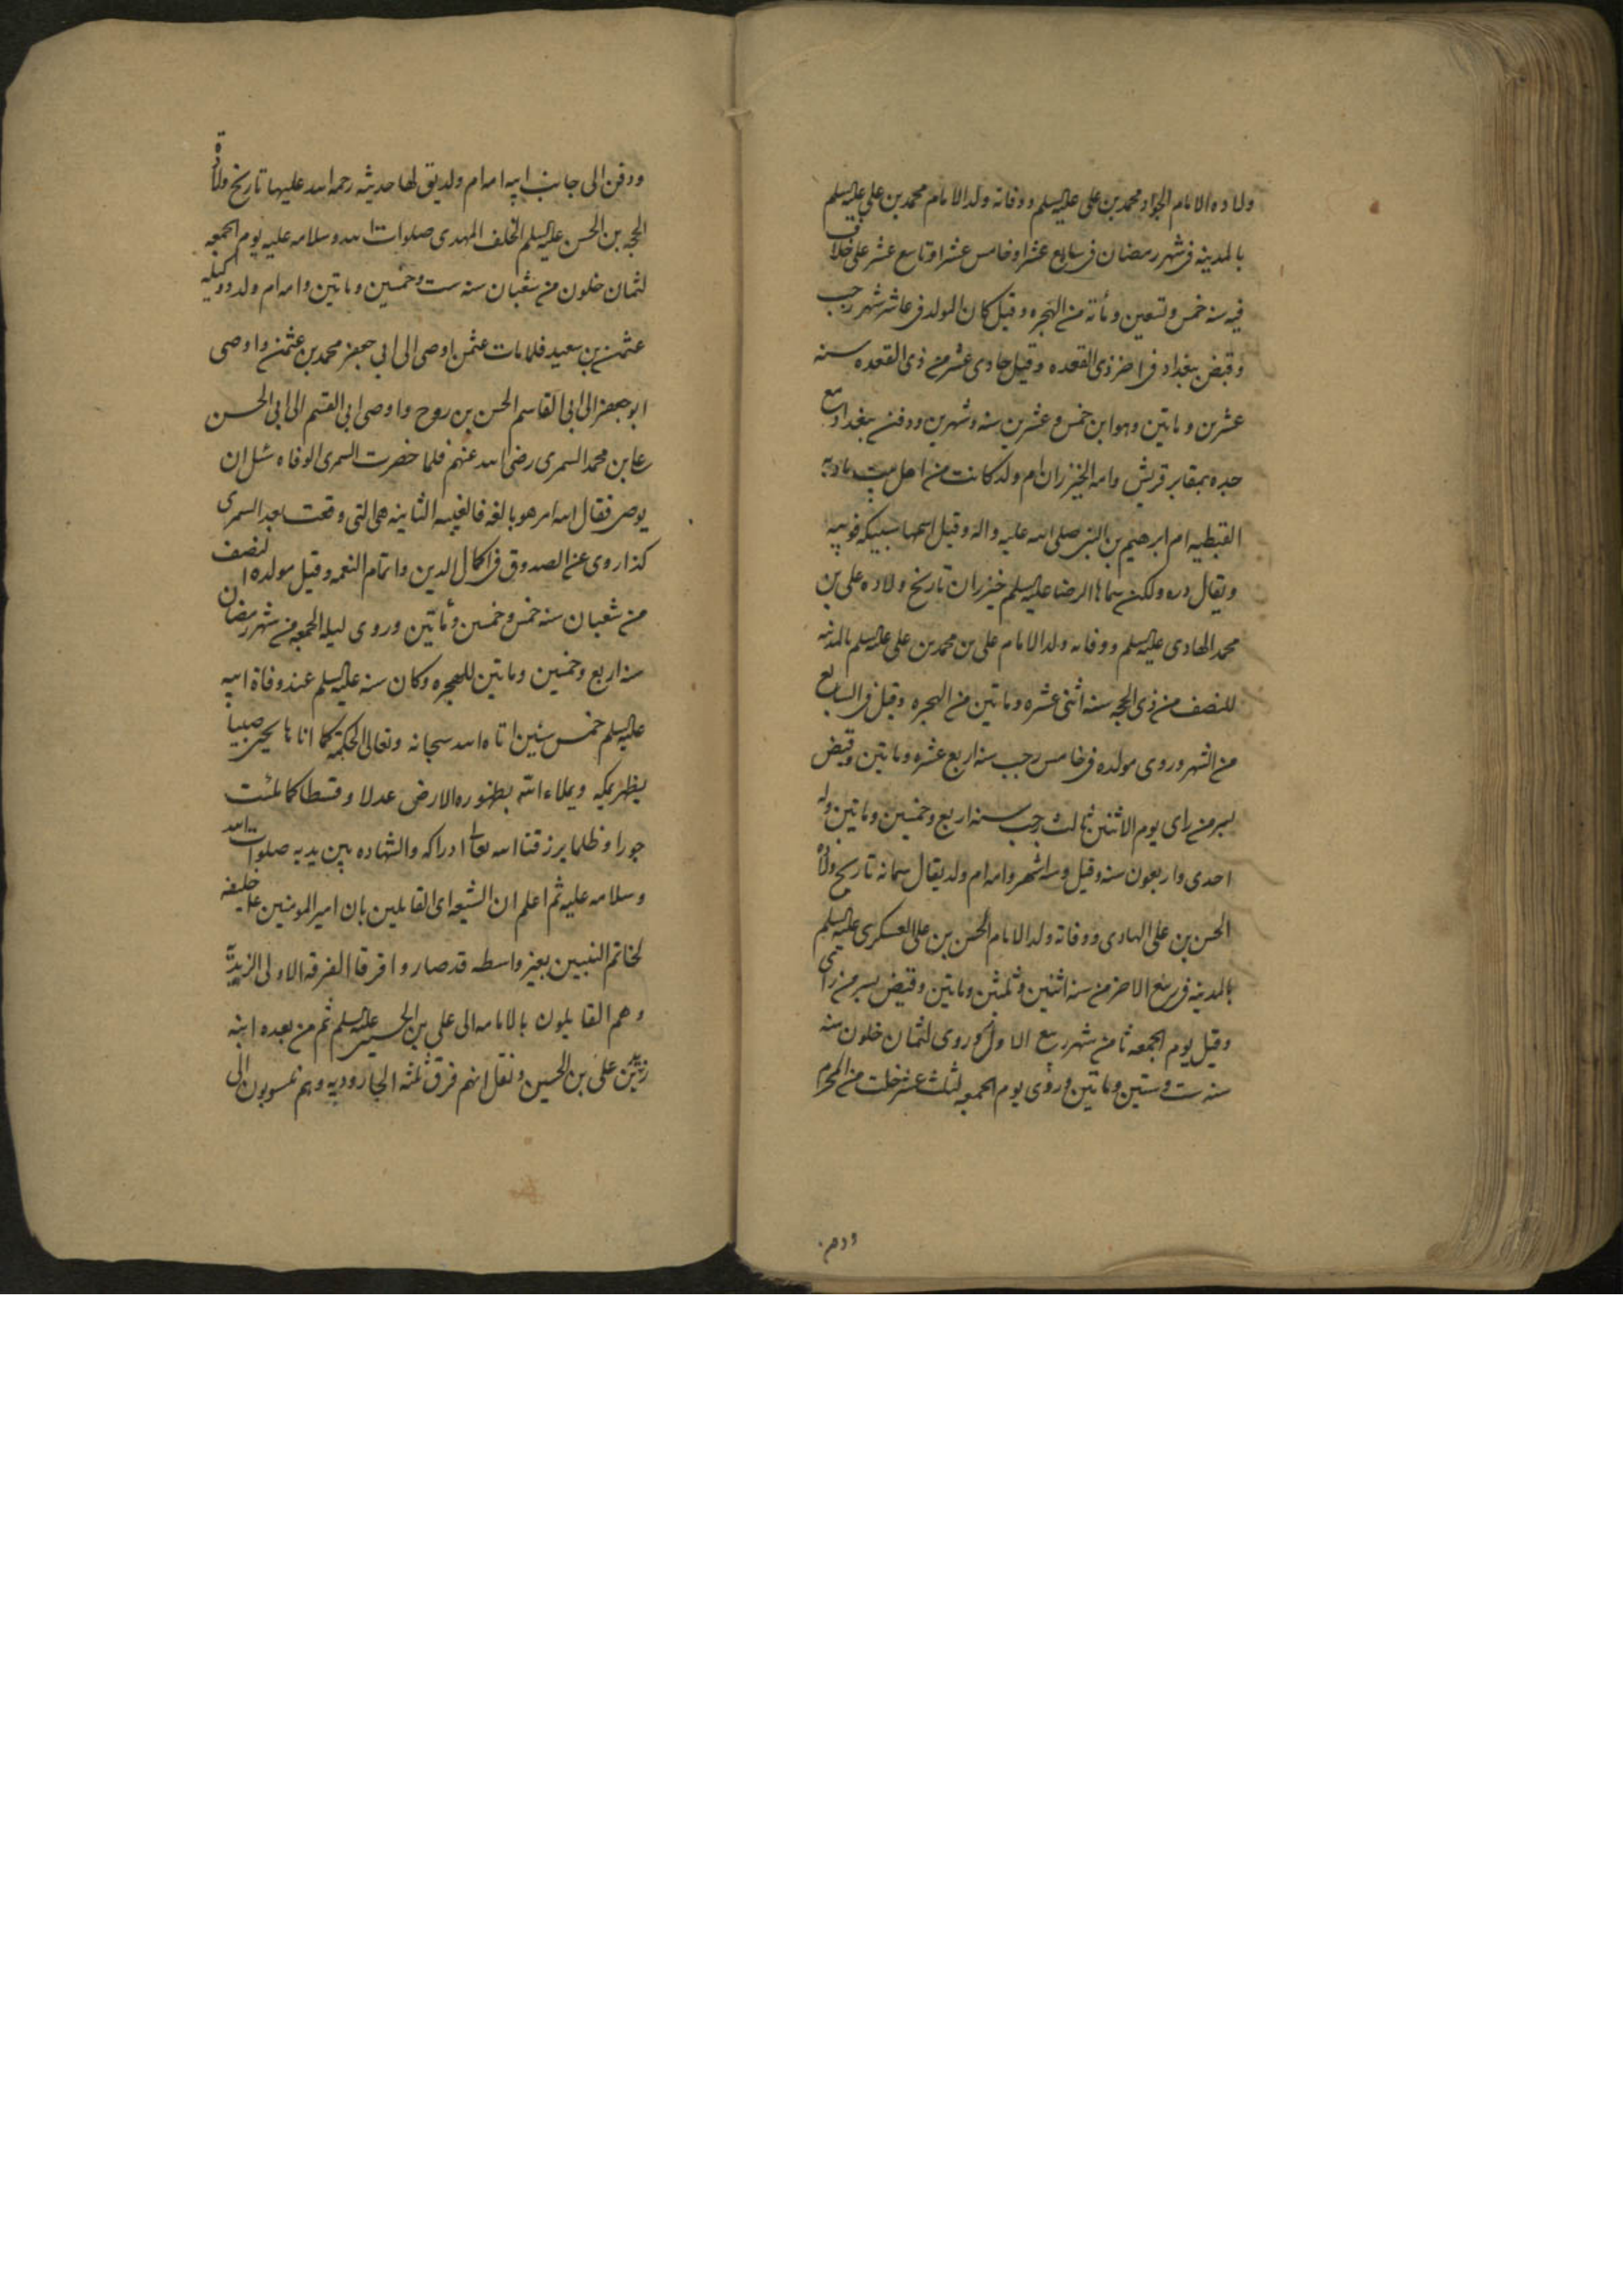 ولاده الامام الجواد محمد بن علی علیه السلم ووفاته ولد الامام محمد بن علی علیه السلم
بالمدینه فی شهر رمضان فی سابع عشر او خامس عشر او تاسع عشر علی خلاف
فیه سنه خمس وتسعین ومأته من الهجره وقیل کان المولد فی عاشر شهر رجب
وقبض ببغداد فی اخر ذی القعده وقیل حادی عشر من ذی القعده سنه
عشرین وماتین وهو ابن خمس وعشرین سنه وشهرین ودفن ببغداد مع
جده بمقابر قریش وامه الخیزران ام ولد کانت من اهل بیت ماریه
القبطیه ام ابرهیم بن النبی صلی الله علیه واله وقیل اسمها سبیکه نوبیه
ویقال دره ولکن سماها الرضا علیه السلم خیزران تاریخ ولاده علی بن
محمد الهادی علیه السلم ووفاته ولد الامام علی بن محمد بن علی علیه السلم بالمدینه
للنصف من ذی الحجه سنه اثنی عشره وماتین من الهجره وقیل فی السابع
من الشهر وروی مولده فی خامس رجب سنه اربع عشره وماتین وقبض
بسر من رای یوم الاثنین ثالث رجب سنه اربع وخمسین وماتین وله
احدی واربعون سنه وقیل وسته اشهر وامه ام ولد یقال سمانه تاریخ ولاده
الحسن بن علی الهادی ووفاته ولد الامام الحسن بن علی العسکری علیه السلم
بالمدینه فی ربیع الاخر من سنه اثنین وثلثین وماتین وقبض بسر من رای
وقیل یوم الجمعه ثامن شهر ربیع الاول وروی لثمان خلون منه
سنه ست وستین وماتین وروی یوم الجمعه لثلث عشر خلت من المحرم
ودفن
ودفن الی جانب ابیه امه ام ولد یق لها حدیثه رحمه الله علیها تاریخ ولادة
الحجه بن الحسن علیه السلم الخلف المهدی صلوات الله وسلامه علیه یوم الجمعه
لثمان خلون من شعبان سنه ست وخمسین وماتین وامه ام ولد ووکیله
عثمن بن سعید فلما مات عثمن اوصی الی ابی جعفر محمد بن عثمن واوصی
ابو جعفر الی ابی القاسم الحسن بن روح واوصی ابی القسم الی ابی الحسن
علی بن محمد السمری رضی الله عنهم فلما حضرت السمری الوفاه سئل ان
یوصی فقال لله امر هو بالغه فالغیبه الثانیه هی التی وقعت بعد السمری
کذا روی عن الصدوق فی اکمال الدین واتمام النعمه وقیل مولده لنصف
من شعبان سنه خمس وخمسین ومأتین وروی لیله الجمعه من شهر رمضان
سنه اربع وخمسین وماتین للهجره وکان سنه علیه السلم عند وفاة ابیه
علیه السلم خمس سنین اتاه الله سبحانه وتعالی الحکمة کما اتاها یحیی صبیا
یظهر بمکه ویملاء الله بظهوره الارض عدلا وقسطا کما ملئت
جورا وظلما یرزقنا الله تعالی ادراکه والشهاده بین یدیه صلوات الله
وسلامه علیه ثم اعلم ان الشیعه ای القایلین بان امیر المومنین علی خلیفه
لخاتم النبیین بغیر واسطه قد صاروا فرقا الفرقه الاولی الزیدیة
وهم القایلون بالامامه الی علی بن الحسین علیه السلم ثم من بعده ابنه
زید بن علی بن الحسین ونقل انهم فرق ثلثه الجارودیه وهم منسوبون الی